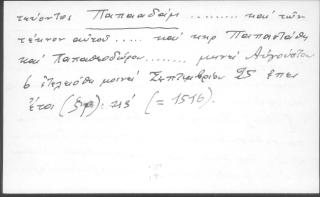 τεύοντος Παπααδάμ ......... καὶ τῶν
τέκνον αὐτοῦ ..... καὶ κὺρ Παπαστάθη
καὶ Παπαθεοδώρου........ μηνεί Αὐγούστου
6 ἐτελειόθη μοινεί Σεπτεμβρίου 25 ἔπει
ἔτοι (ζκδ): κε´ (= 1516).